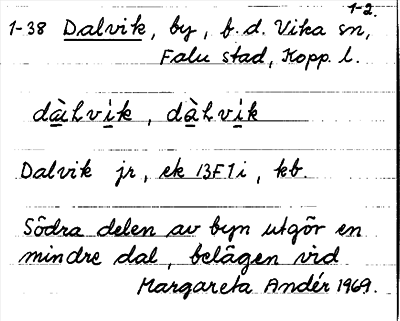 1-2.
1-38 Dalvik, by, f.d. Vika sn,
Falu stad, Kopp. l.
dàlvik, dàlvik
Dalvik jr, ek 13F1i, kb.
Södra delen av byn utgör en
mindre dal, belägen vid
Margareta Andér 1969.